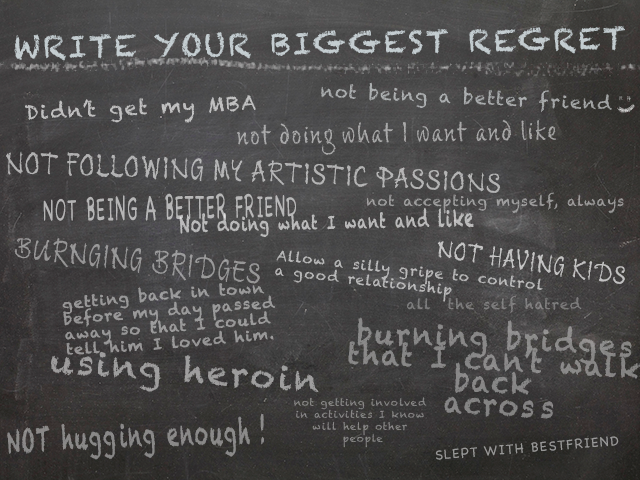 WRITE YOUR BIGGEST REGRET
Didn't get my MBA
not being a better friend
not doing what I want and like
NOT FOLLOWING MY ARTISTIC PASSIONS
not accepting myself, always
NOT BEING A BETTER FRIEND
Not doing what I want and like
BURNGING BRIDGES
NOT HAVING KIDS
Allow a silly gripe to control
a good relationship
getting back in town
before my day passed
away so that I could
tell him I loved him.
all the self hatred
burning bridges
that I can't walk
back
across
using heroin
not getting involved
in activities I know
will help other
people
NOT hugging enough!
SLEPT WITH BESTFRIEND